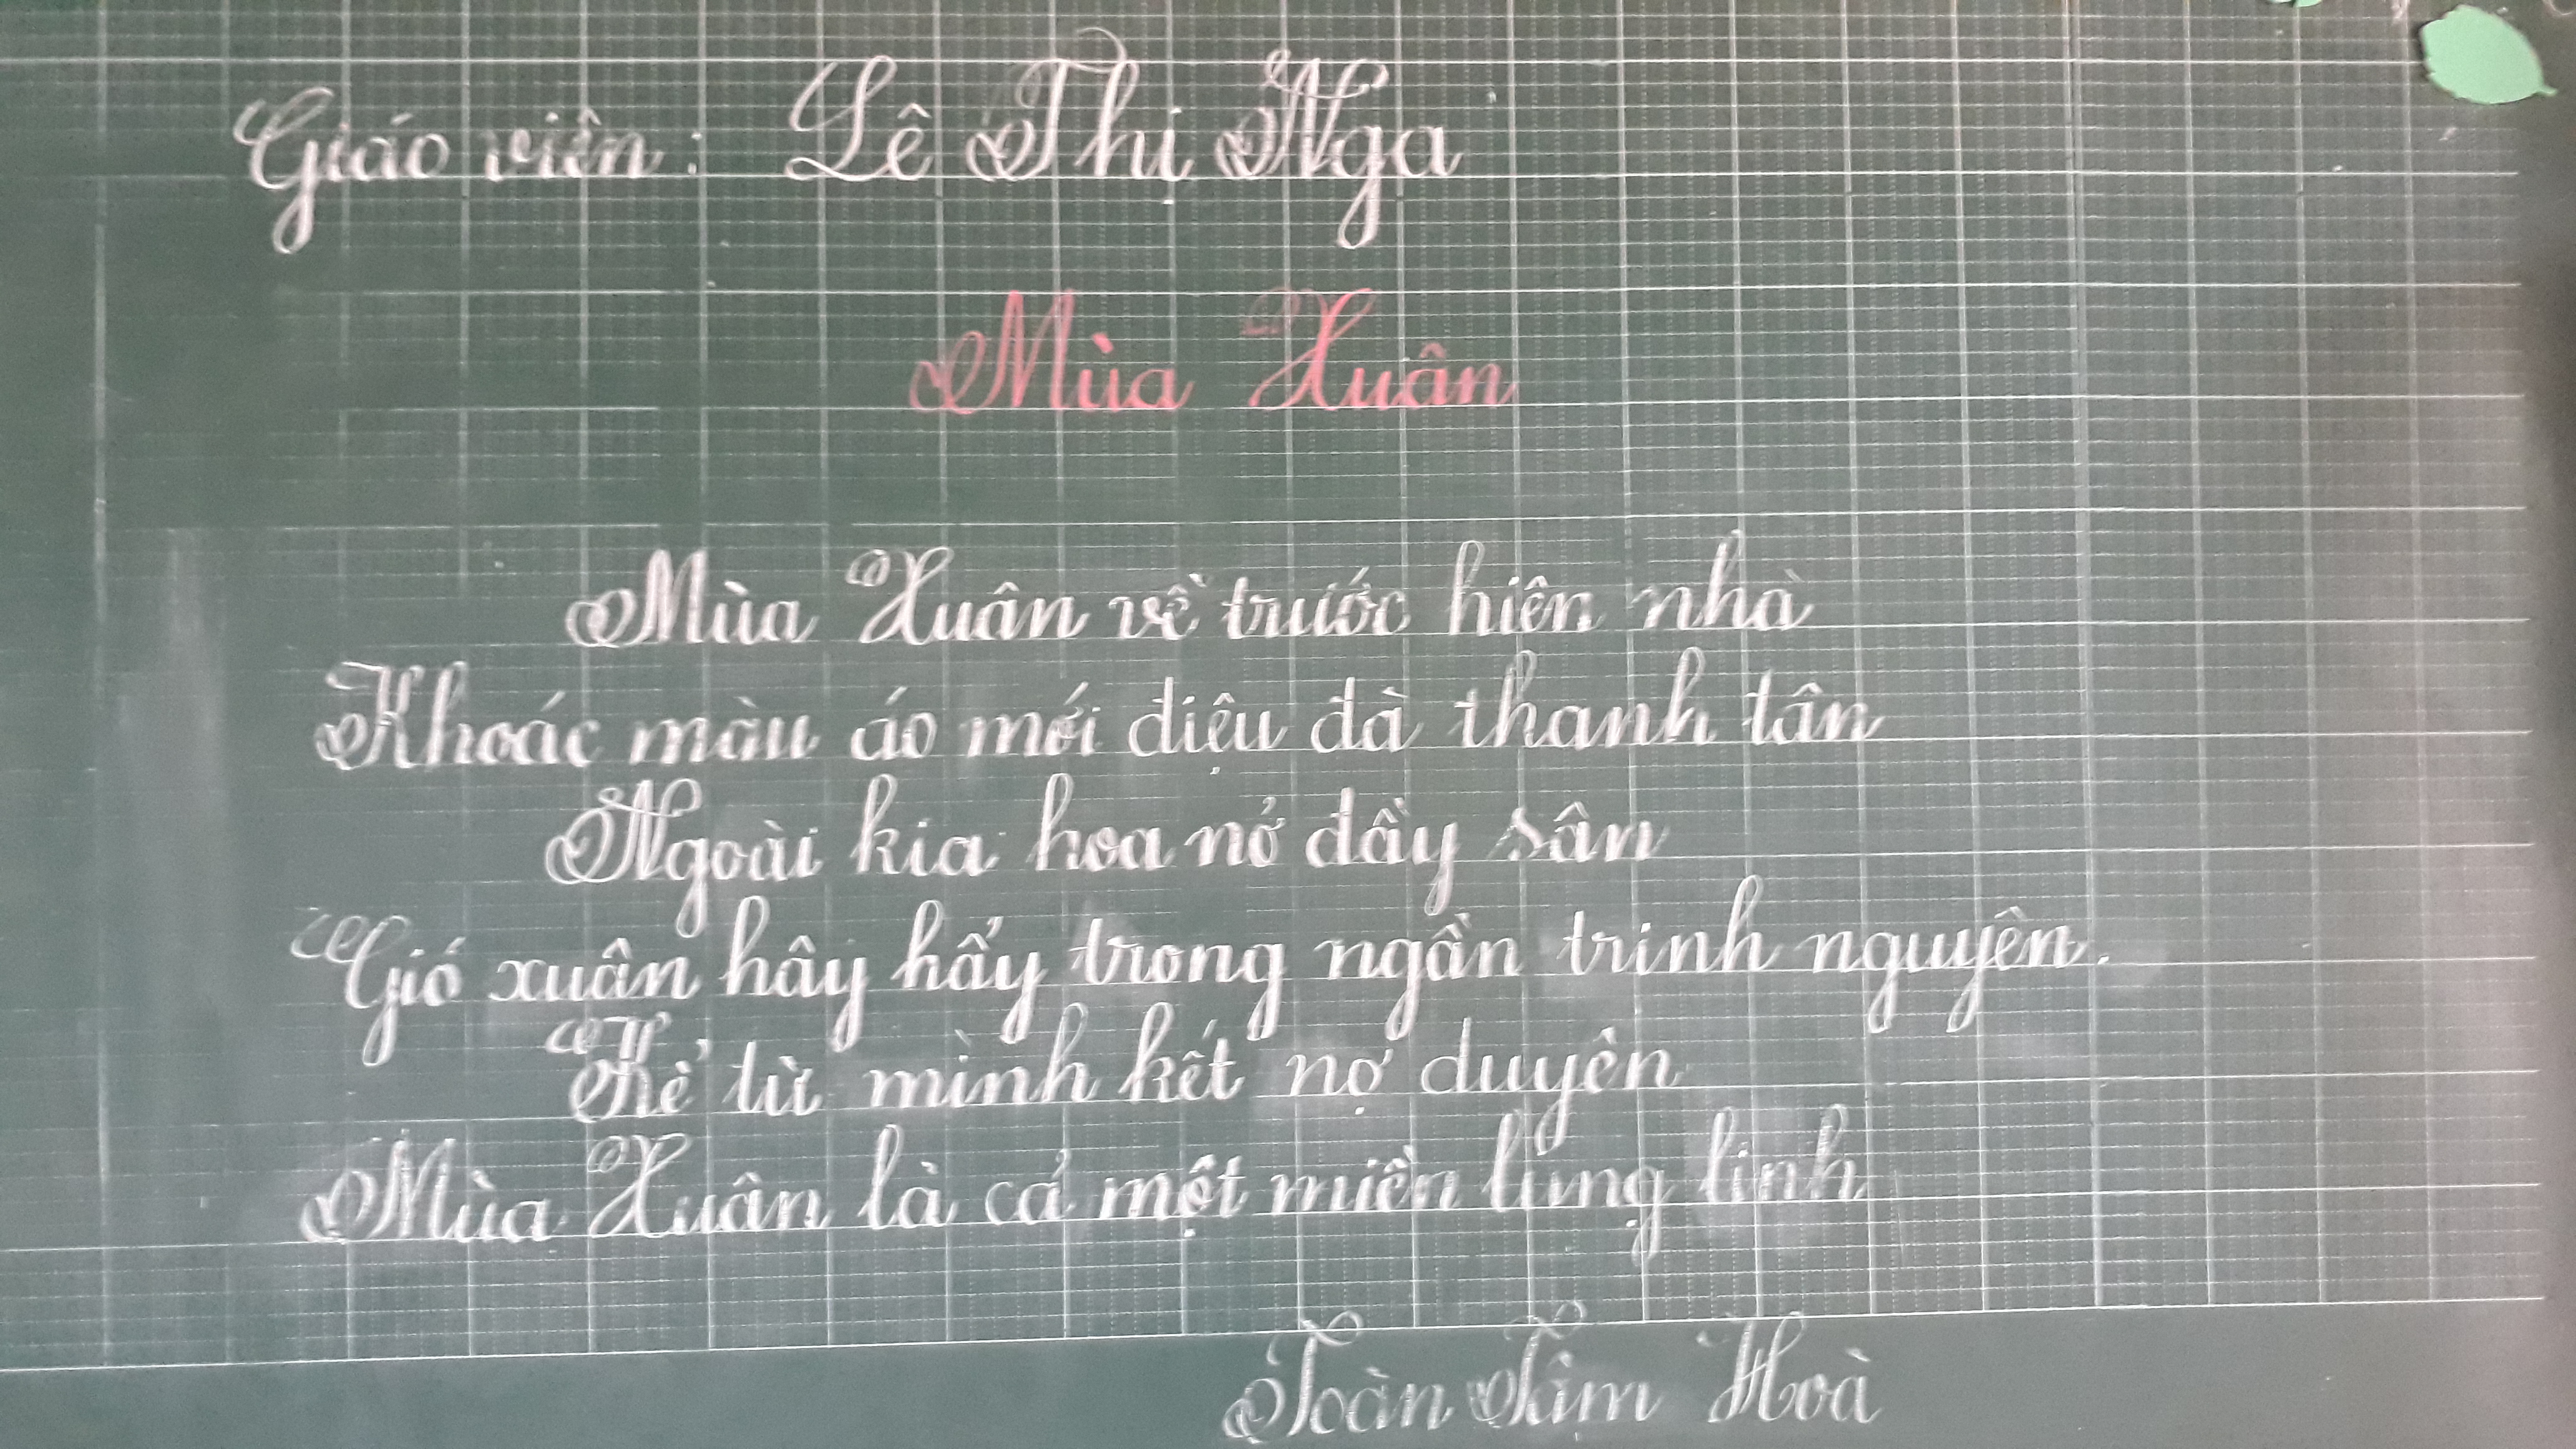 Giáo viên: Lê Thị Nga
Mùa Xuân
Mùa Xuân về trước hiên nhà
Khoác màu áo mới diệu đà thanh tân
Ngoài kia hoa nở đầy sân
Gió xuân hây hẩy trong ngần trinh nguyên.
Kể từ mình kết nợ duyên
Mùa Xuân là cả một miền lung linh
Toàn Tâm Hoà